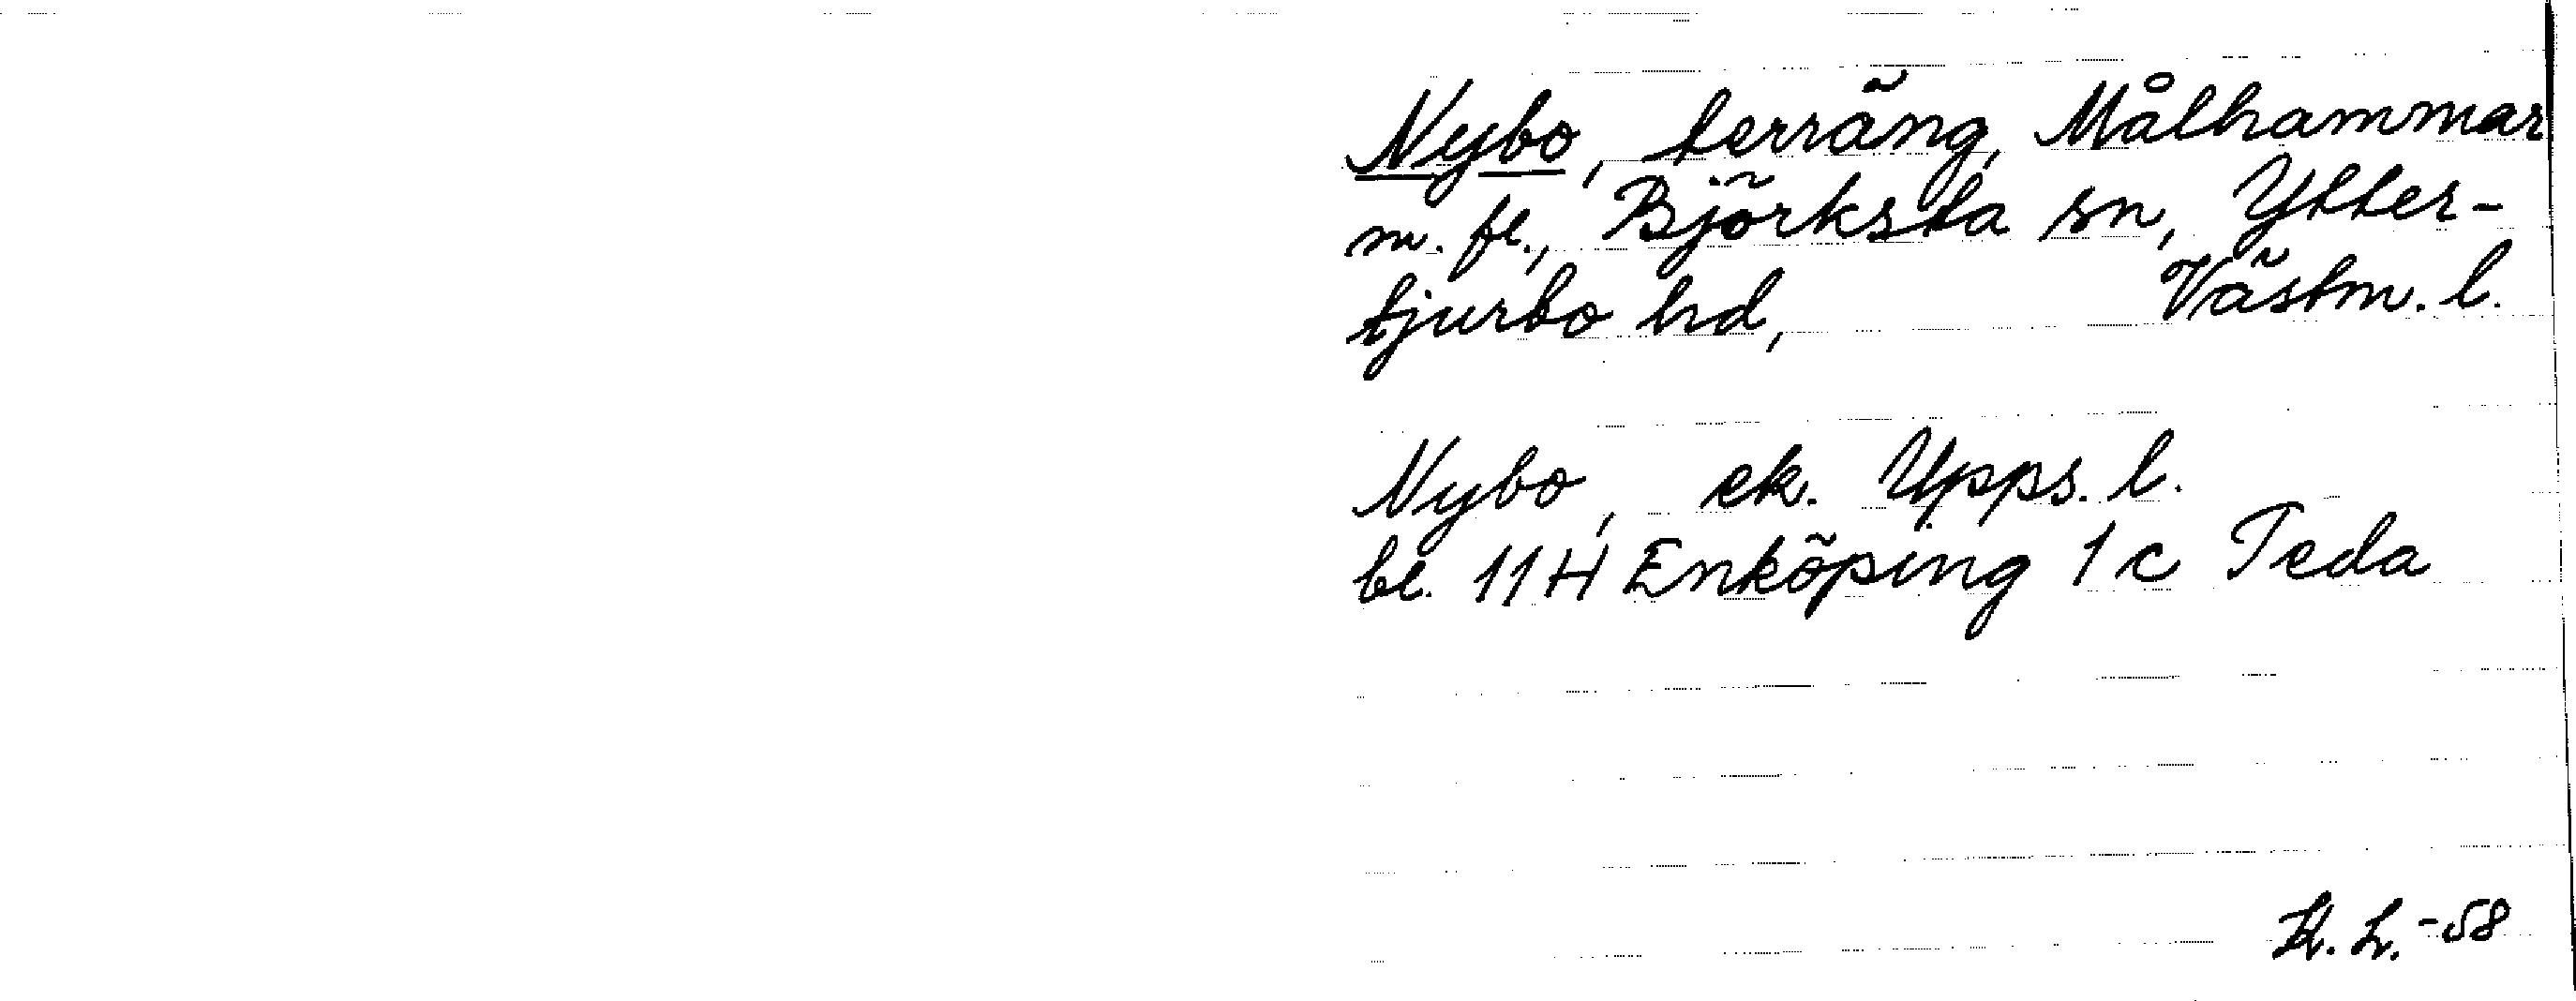 Nybo, terräng, Målhammar
m. fl., Björksta sn, Ytter-
tjurbo hd, Västm. l.
Nybo, ek. Upps. l.
bl. 11 H Enköping 1 c Teda
H. L. -58